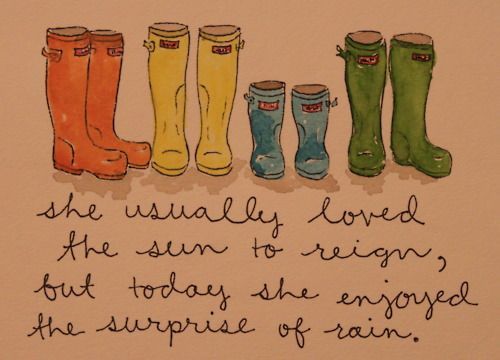 she usually loved
the sun to reign,
but today she enjoyed
the surprise of rain.